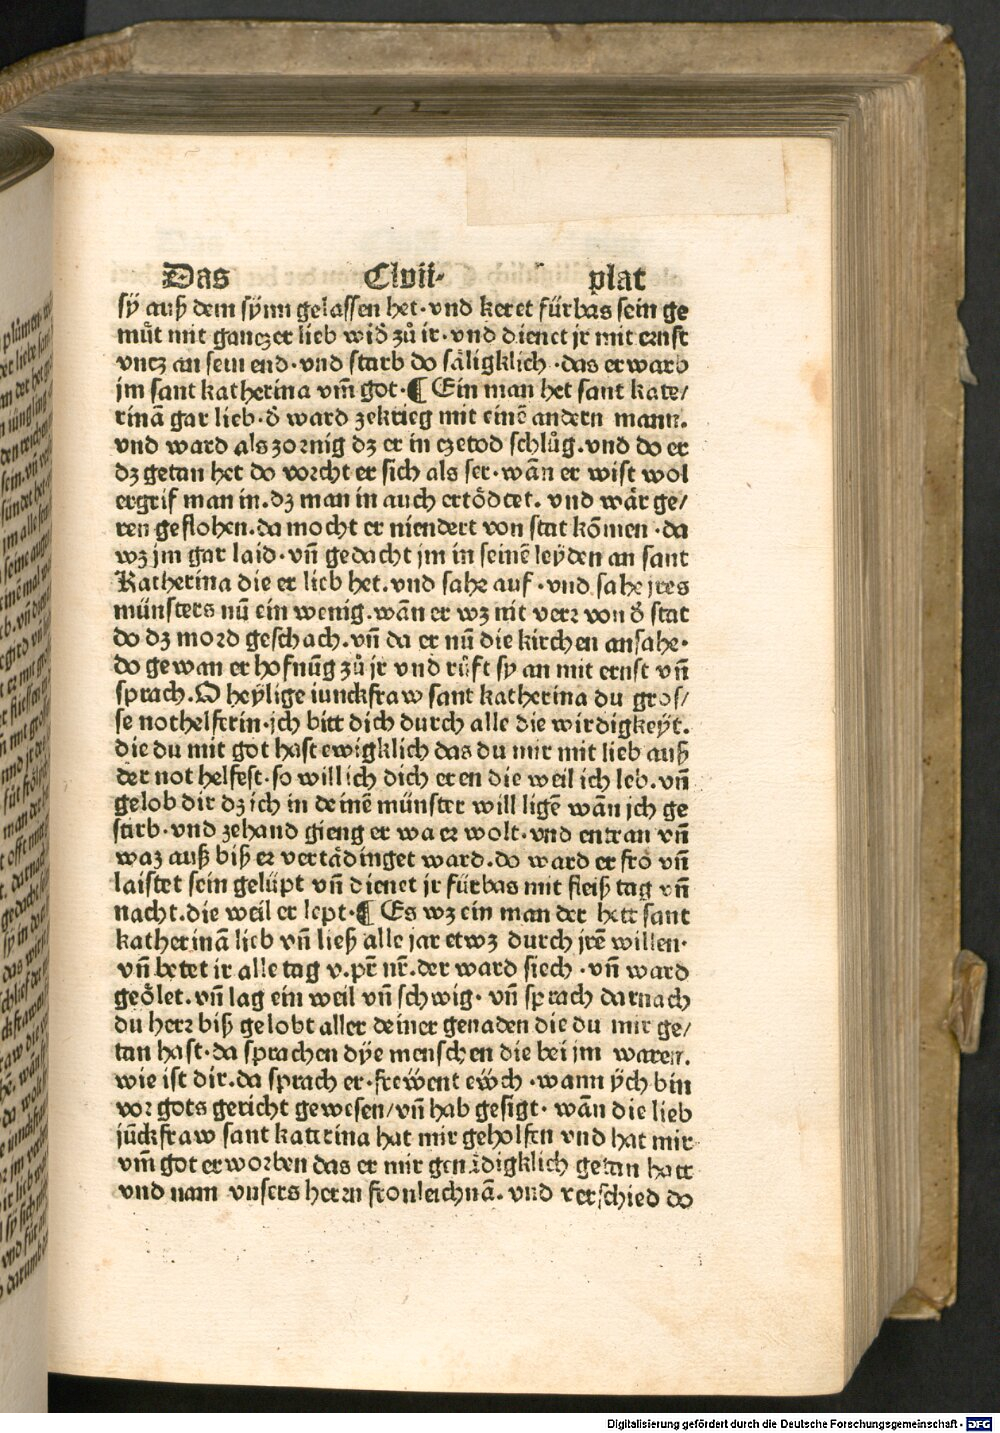 Das Clvii· plat
sÿ auß dem sÿnn gelassen het·vnd keret fürbas sein ge
müt mit ganczer lieb wid̄ zů ir·vnd dienet jr mit ernst
vncz an sein end·vnd starb do säligklich·das erwarb
jm sant katherina vm̄ got·¶ Ein man het sant kate/
rinā gar lieb·d̄ ward zekrieg mit einē andern mann.
vnd ward als zornig dz er in czetod schlůg.vnd do er
dz getan het do vorcht er sich als ser·wān er wist wol
ergrif man in.dz man in auch ertödtet. vnd wär ge/
ren geflohen.da mocht er niendert von stat kōmen·da
wz jm gar laid·vn̄ gedacht jm in seinē leÿden an sant
Katherina die er lieb het.vnd sahe auf·vnd sahe jres
münsters nū ein wenig.wān er wz nit verr von d̄ stat
do dz mord geschach.vn̄ da er nū die kirchen ansahe·
do gewan er hofnūg zů jr vnd růft sy an mit ernst vn̄
sprach.O heÿlige iunckfraw sant katherina du gros/
se nothelferin·jch bitt dich durch alle die wirdigkeÿt.
die du mit got hast ewigklich das du mir mit lieb auß
der not helfest·so will ich dich eren die weil ich leb.vn̄
gelob dir dz ich in deinē münster will ligē wān jch ge
stirb·vnd zehand gieng er wa er wolt·vnd entran vn̄
waz auß biß er vertädinget ward.do ward er fro vn̄
laistet sein gelüpt vn̄ dienet jr fürbas mit fleiß tag vn̄
nacht.die weil er lept·¶ Es wz ein man der hett sant
katherinā lieb vn̄ ließ alle jar etwz durch jrē willen·
vn̄ betet ir alle tag v.pr̄ nr̄.der ward siech·vn̄ ward
geölet.vn̄ lag ein weil vn̄ schwig·vn̄ sprach darnach
du herr biß gelobt aller deiner genaden die du mir ge/
tan hast·da sprachen dÿe menschen die bei jm waren.
wie ist dir.da sprach er·freẅent eẅch·wann ÿch bin
vor gots gericht gewesen/vn̄ hab gesigt·wān die lieb
jūckfraw sant katerina hat mir geholfen vnd hat mir
vm̄ got erworben das er mir genädigklich getan hatt
vnd nam vnsers herrn fronleichnā.vnd verschied do
Digitalisierung gefördert durch die Deutsche Forschungsgemeinschaft · DFG